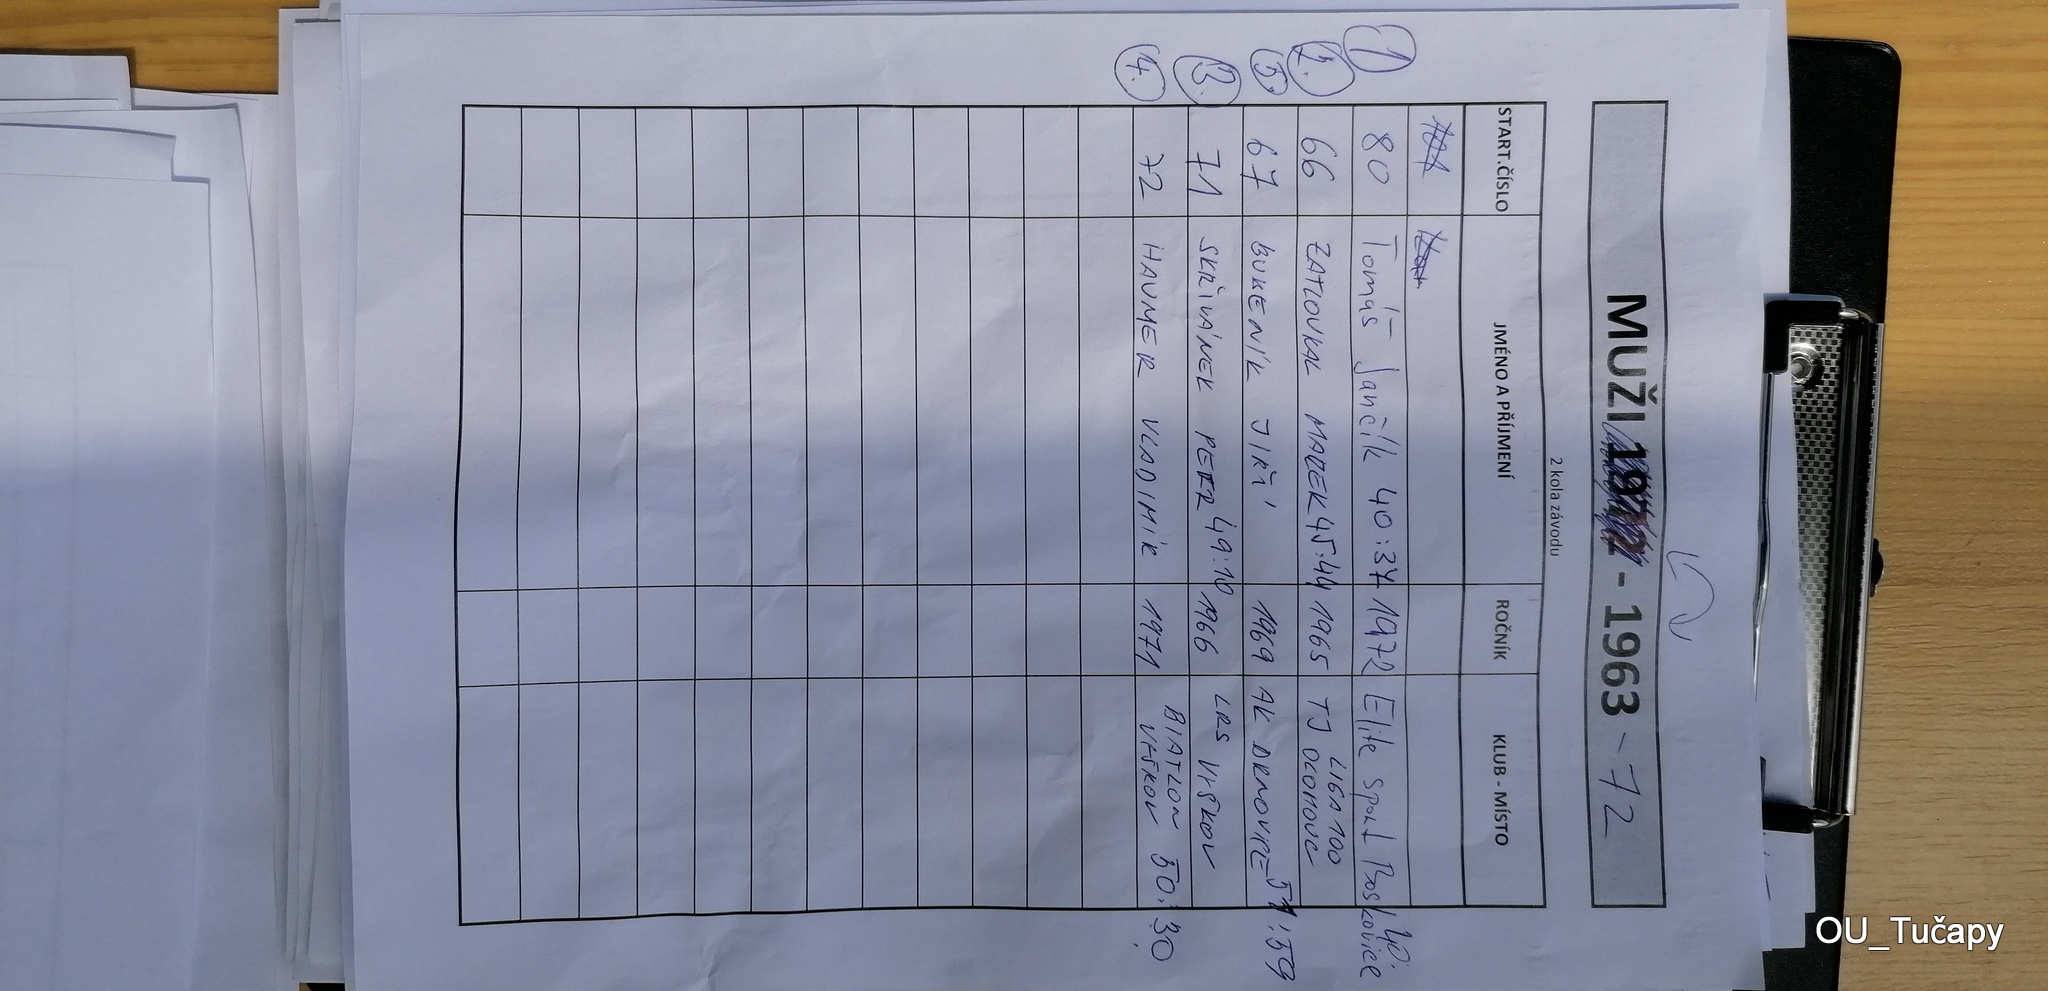 MUŽI - 1963 - 72
2 kola závodu
START.ČÍSLO JMÉNO A PŘÍJMENÍ ROČNÍK KLUB - MÍSTO
1 80 Tomáš Jančík 40:37 1972 Elite Sport Boskovice
2. 66 ZATLOUKAL MAREK 45:44 1965 LIGA 100 TJ OLOMOUC
5. 67 BUKENÍK JIŘÍ 1969 AK DRNOVICE :59
3. 71 SKŘIVÁNEK PETR 49:10 1966 LRS VYŠKOV
4. 72 HAUMER VLADIMÍR 1971 BIATLON VYŠKOV 50:30
OU_Tučapy